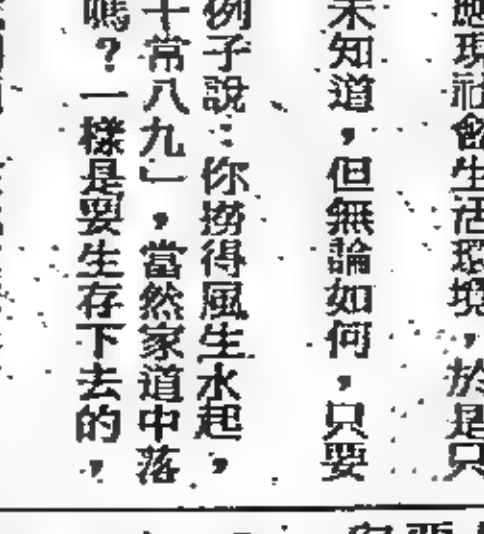 應現社會生活環境，於是只
未知道，但無論如何，只要
例子說：你撈得風生水起，
十常八九」，當然家道中落
嗎？一樣是要生存下去的，